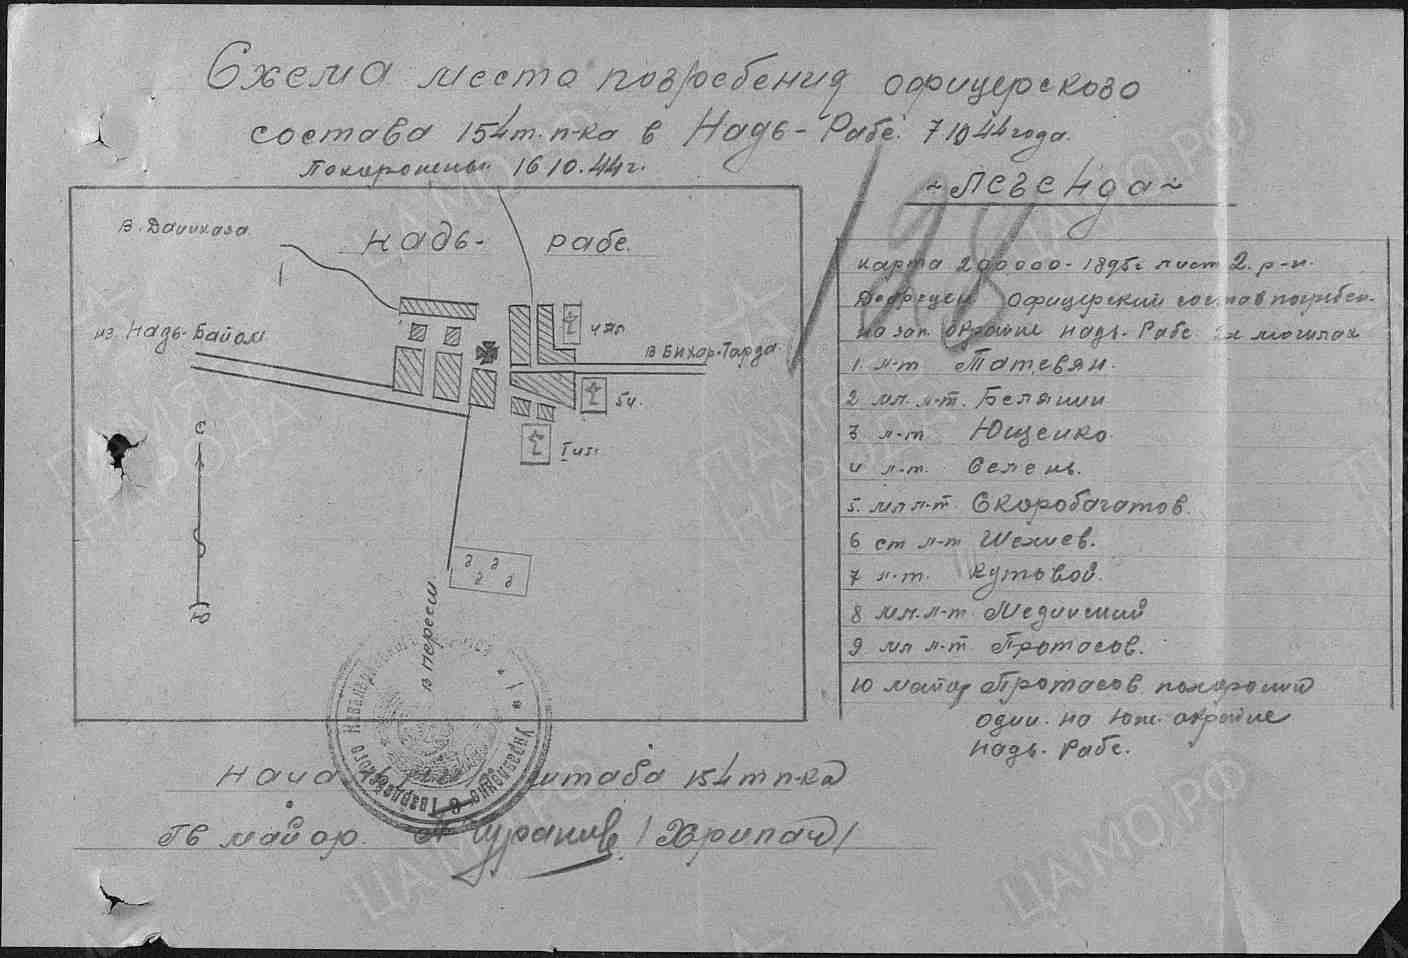 Схема места погребения офицерского
состава 154 т. п-ка в Надь-Рабе. 7 10 44 года.
Похоронены 16 10. 44 г.
198
~ Легенда ~
в. Даниказа
Надь- рабе.
из. Надь-Байом
в Бихар-Тарда.
5ч.
С
Ю
в переем
карта 200000-1895г лист 2. р-н.
Дебрецен Офицерский состав погребен-
на зап. окраине Надь-Рабе. 2х могилах
1. л-т Татевян.
2 мл. л-т. Белянин
3 л-т Ющенко.
4 л-т. Селень.
5. мл л-т. Скоробагатов.
6 ст л-т Шехиев.
7 л-т. Кутовой.
8 мл. л-т. Мединский
9 мл л-т Протасов.
10 майор Протасов похоронен
один. на юж. окраине
Надь-Рабе.
штаба 154 т п-ка
Гв майор. /Хрипач/
ЦАМО.РФ
ПАМЯТЬ НАРОДА